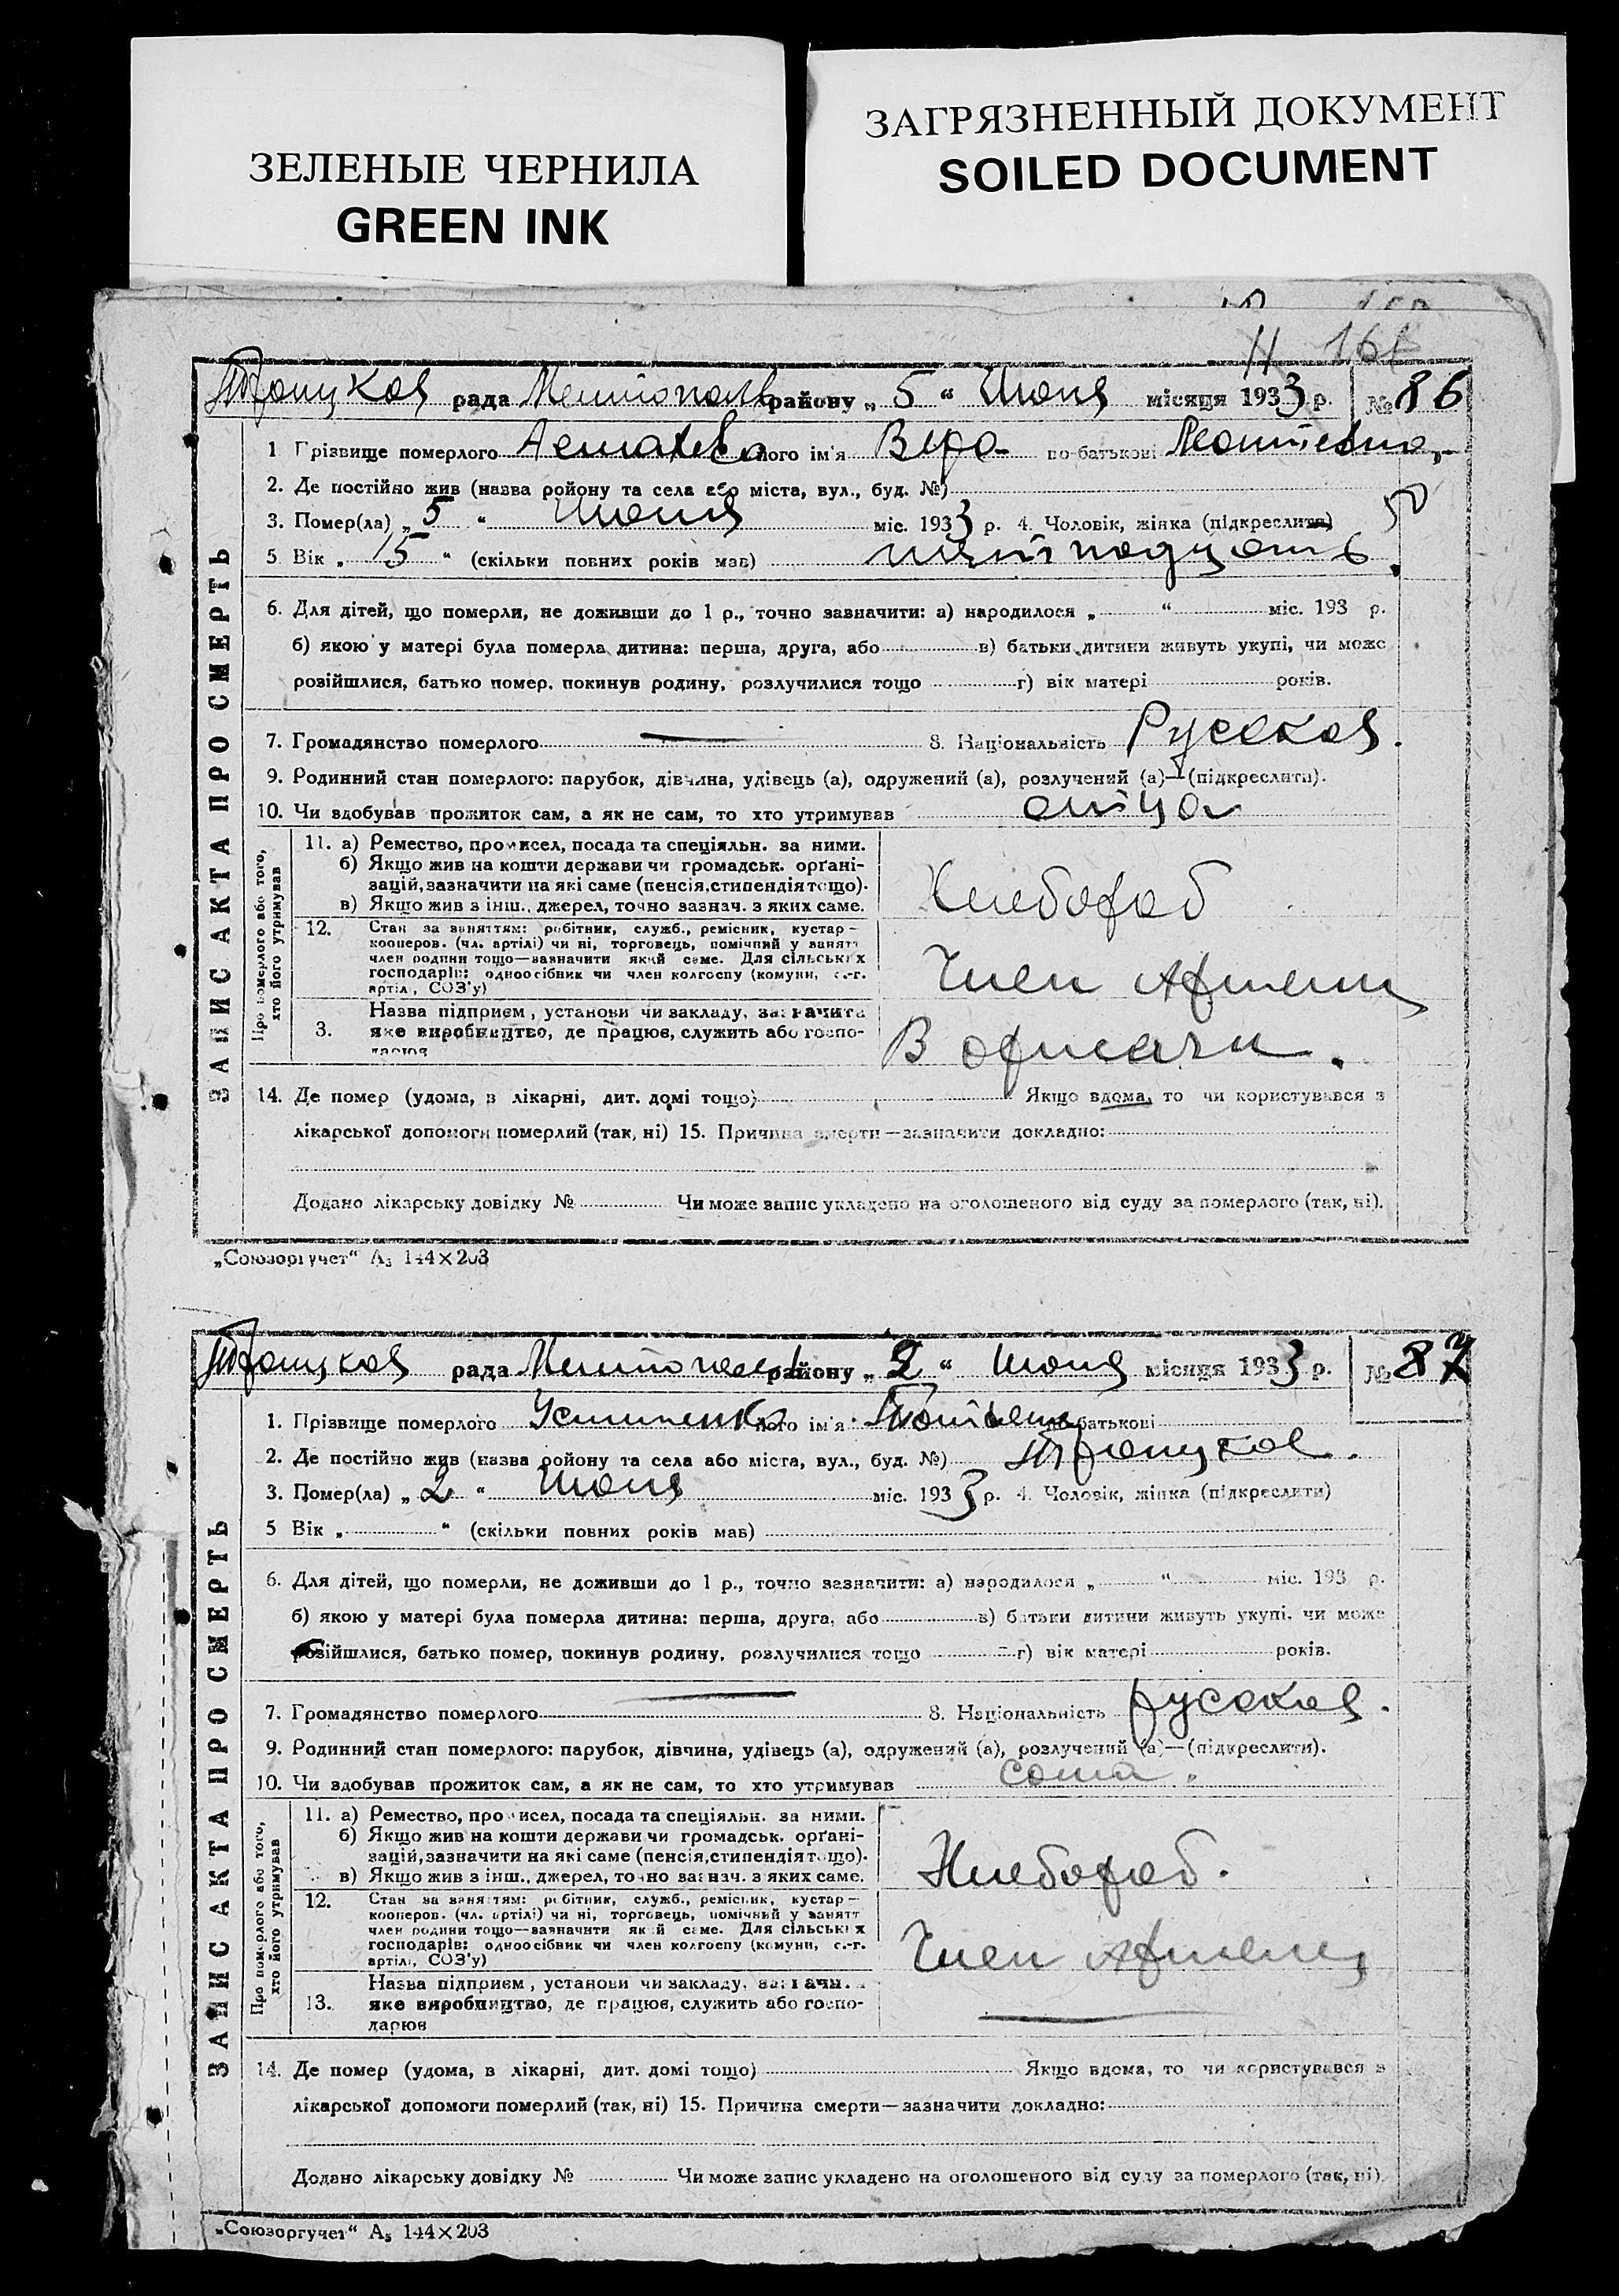 ЗЕЛЕНЫЕ ЧЕРНИЛА
GREEN INK
ЗАГРЯЗНЕННЫЙ ДОКУМЕНТ
SOILED DOCUMENT
ЗАПИС АКТА ПРО СМЕРТЬ
рада району „ 5 “ Июня місяця 1933 р. № 86
1 Прізвище померлого його ім'я Вера по-батькові
2. Де постійно жив (назва ройону та села або міста, вул., буд. №)
3. Помер(ла) „ 5 “ Июня міс. 1933 р. 4. Чоловік, жінка (підкреслити)
5 Вік „ 15 “ (скільки повних років мав) пятнадцать
6. Для дітей, що померли, не доживши до 1 р., точно зазначити: а) народилося „ “ міс. 193 р.
б) якою у матері була померла дитина: перша, друга, або в) батьки дитини живуть укупі, чи може
розійшлися, батько помер, покинув родину, розлучилися тощо г) вік матері років.
7. Громадянство померлого — 8. Національність Русская.
9. Родинний стан померлого: парубок, дівчина, удівець (а), одружений (а), розлучений (а)—(підкреслити).
10. Чи здобував прожиток сам, а як не сам, то хто утримував отца
Про померлого або того, хто його утримував
11. а) Ремество, промисел, посада та спеціяльн. за ними.
б) Якщо жив на кошти держави чи громадськ. орґані-
зацій, зазначити на які саме (пенсія, стипендія тощо).
в) Якщо жив з інш., джерел, точно зазнач. з яких саме.
Хлебороб
12. Стан за заняттям: робітник, служб., ремісник, кустар—
кооперов. (чл. артілі) чи ні, торговець, помічний у занятт
член родини тощо—зазначити який саме. Для сільських
господарів: одноосібник чи член колгоспу (комуни, с.-г.
артілі, СОЗ'у)
Член Артели
3. Назва підприєм, установи чи закладу, зазначити
яке виробництво, де працює, служить або госпо-
дарює
В
14. Де помер (удома, в лікарні, дит. домі тощо) Якщо вдома, то чи користувався з
лікарської допомоги померлий (так, ні) 15. Причина смерти—зазначити докладно:
Додано лікарську довідку № Чи може запис укладено на оголошеного від суду за померлого (так, ні).
„Союзоргучет“ А₅ 144×203
ЗАПИС АКТА ПРО СМЕРТЬ
рада району „ 2 “ Июня місяця 1933 р. № 87
1. Прізвище померлого Устименко його ім'я по-батькові
2. Де постійно жив (назва ройону та села або міста, вул., буд. №)
3. Помер(ла) „ 2 “ Июня міс. 1933 р. 4. Чоловік, жінка (підкреслити)
5 Вік „ “ (скільки повних років мав)
6. Для дітей, що померли, не доживши до 1 р., точно зазначити: а) народилося „ “ міс. 193 р.
б) якою у матері була померла дитина: перша, друга, або в) батьки дитини живуть укупі, чи може
розійшлися, батько помер, покинув родину, розлучилися тощо г) вік матері років.
7. Громадянство померлого — 8. Національність русская.
9. Родинний стан померлого: парубок, дівчина, удівець (а), одружений (а), розлучений (а)—(підкреслити).
10. Чи здобував прожиток сам, а як не сам, то хто утримував сама.
Про померлого або того, хто його утримував
11. а) Ремество, промисел, посада та спеціяльн. за ними.
б) Якщо жив на кошти держави чи громадськ. орґані-
зацій, зазначити на які саме (пенсія, стипендія тощо).
в) Якщо жив з інш., джерел, точно зазнач. з яких саме.
Хлебороб.
12. Стан за заняттям: робітник, служб., ремісник, кустар—
кооперов. (чл. артілі) чи ні, торговець, помічний у занятт
член родини тощо—зазначити який саме. Для сільських
господарів: одноосібник чи член колгоспу (комуни, с.-г.
артілі, СОЗ'у)
Член Артели
13. Назва підприєм, установи чи закладу, зазначи.
яке виробництво, де працює, служить або госпо-
дарює —
14. Де помер (удома, в лікарні, дит. домі тощо) Якщо вдома, то чи користувався з
лікарської допомоги померлий (так, ні) 15. Причина смерти—зазначити докладно:
Додано лікарську довідку № Чи може запис укладено на оголошеного від суду за померлого (так, ні)
„Союзоргучет“ А₅ 144×203